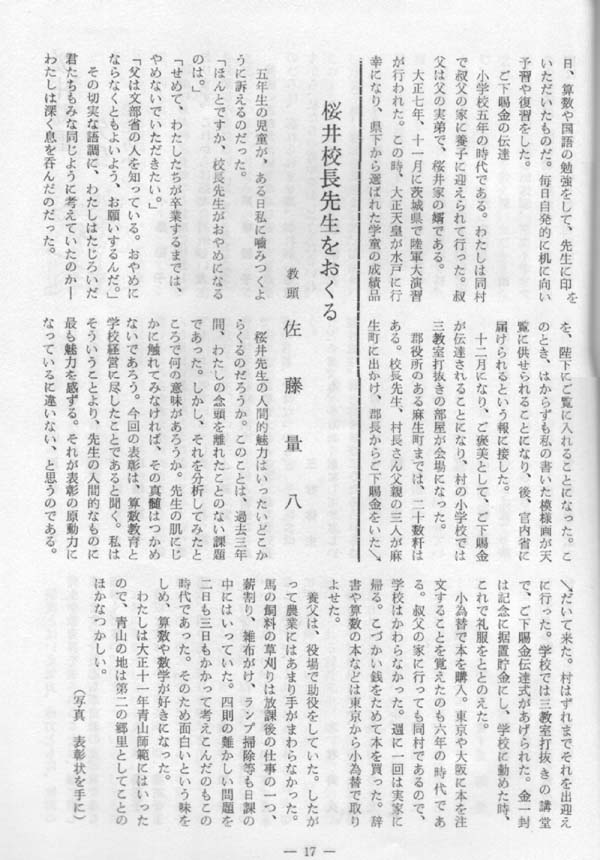 日、算数や国語の勉強をして、先生に印を
いただいたものだ。毎日自発的に机に向い
予習や復習をした。
ご下賜金の伝達
小学校五年の時代である。わたしは同村
で叔父の家に養子に迎えられて行った。叔
父は父の実弟で、桜井家の婿である。
大正七年、十一月に茨城県で陸軍大演習
が行われた。この時、大正天皇が水戸に行
幸になり、県下から選ばれた学童の成績品
を、陛下にご覧に入れることになった。こ
のとき、はからずも私の書いた模様画が天
覧に供せられることになり、後、宮内省に
届けられるという報に接した。
十二月になり、ご褒美として、ご下賜金
が伝達されることになり、村の小学校では
三教室打抜きの部屋が会場になった。
郡役所のある麻生町までは、二十数粁は
ある。校長先生、村長さん父親の三人が麻
生町に出かけ、郡長からご下賜金をいた↘
↘だいて来た。村はずれまでそれを出迎え
に行った。学校では三教室打抜きの講堂
で、ご下賜金伝達式があげられた。金一封
は記念に据置貯金にし、学校に勤めた時、
これで礼服をととのえた。
小為替で本を購入。東京や大阪に本を注
文することを覚えたのも六年の時代であ
る。叔父の家に行っても同村であるので、
学校はかわらなかった。週に一回は実家に
帰る。こづかい銭をためて本を買った。辞
書や算数の本などは東京から小為替で取り
よせた。
養父は、役場で助役をしていた。したが
って農業にはあまり手がまわらなかった。
馬の飼料の草刈りは放課後の仕事の一つ、
薪割り、雑布がけ、ランプ掃除等も日課の
中にはいっていた。四則の難かしい問題を
二日も三日もかかって考えこんだのもこの
時代であった。そのため面白いという味を
しめ、算数や数学が好きになった。
わたしは大正十一年青山師範にはいった
ので、青山の地は第二の郷里としてことの
ほかなつかしい。
(写真 表彰状を手に)
桜井校長先生をおくる
教頭 佐藤量八
五年生の児童が、ある日私に噛みつくよ
うに訴えるのだった。
「ほんとですか、校長先生がおやめになる
のは。」
「せめて、わたしたちが卒業するまでは、
やめないでいただきたい。」
「父は文部省の人を知っている。おやめに
ならなくともよいよう、お願いするんだ。」
その切実な語調に、わたしはたじろいだ
君たちもみな同じように考えていたのか―
わたしは深く息を呑んだのだった。
桜井先生の人間的魅力はいったいどこか
らくるのだろうか。このことは、過去三年
間、わたしの念頭を離れたことのない課題
であった。しかし、それを分析してみたと
ころで何の意味があろうか。先生の肌にじ
かに触れてみなければ、その真髄はつかめ
ないであろう。今回の表彰は、算数教育と
学校経営に尽したことであると聞く。私は
そういうことより、先生の人間的なものに
最も魅力を感ずる。それが表彰の原動力に
なっているに違いない、と思うのである。
― 17 ―